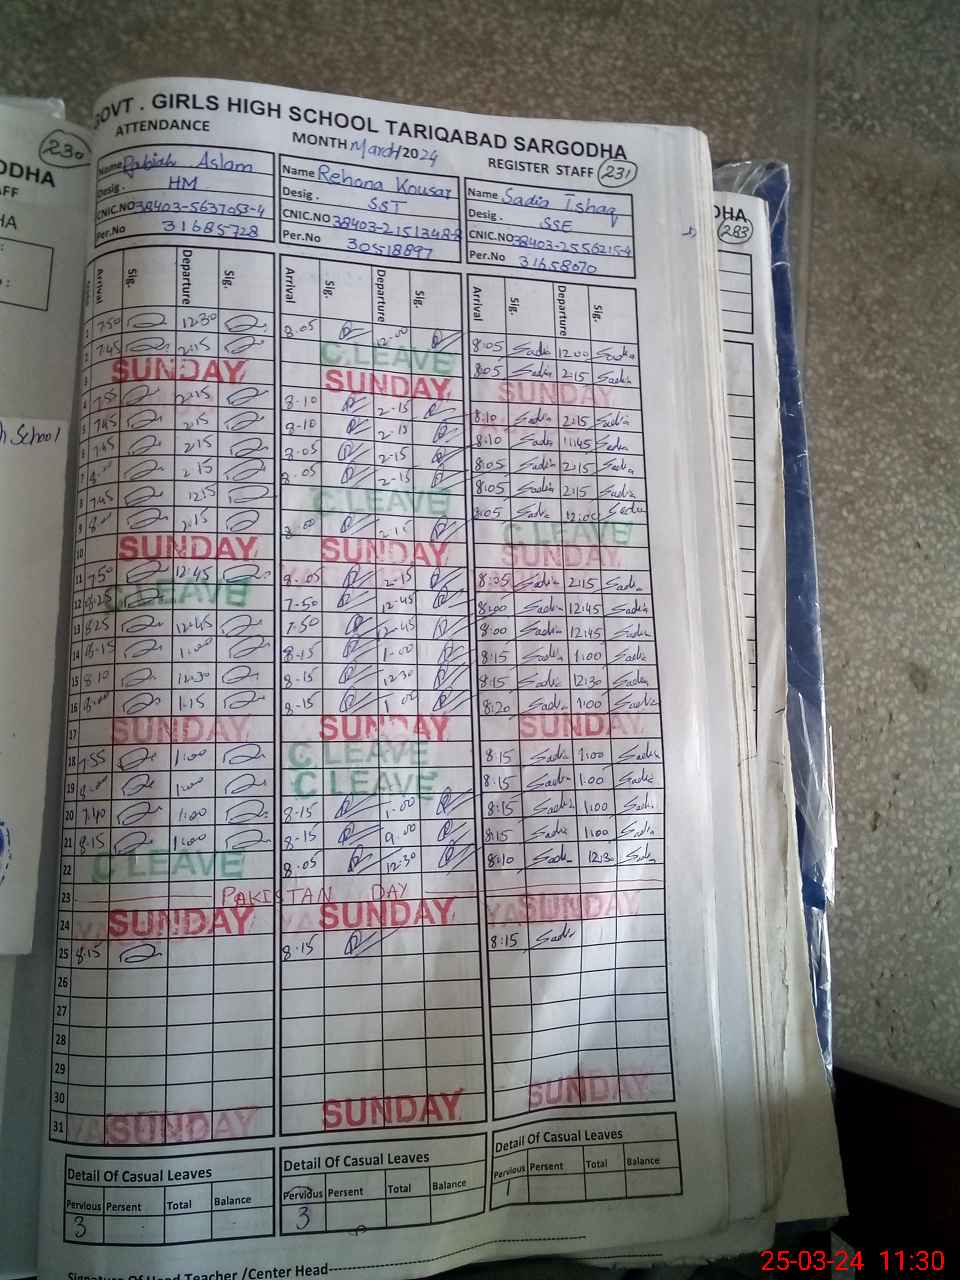 GOVT . GIRLS HIGH SCHOOL TARIQABAD SARGODHA
ATTENDANCE MONTH March 2024 REGISTER STAFF 231
230
ODHA
AFF
HA
DHA
283
h School
Name Rabiah Aslam
Desig . HM
CNIC.NO 38403-5637053-4
Per.No 31685728
Name Rehana Kousar
Desig . SST
CNIC.NO 38403-2151348-8
Per.No 30518897
Name Sadia Ishaq
Desig . SSE
CNIC.NO 38403-2556215-4
Per.No 31658070
Arrival Sig. Departure Sig. Arrival Sig. Departure Sig. Arrival Sig. Departure Sig.
1 7.50 12:30 8.05 12.00 8:05 Sadia 12:00 Sadia
2 7.45 2.15 C.LEAVE 8:05 Sadia 2:15 Sadia
3 SUNDAY SUNDAY SUNDAY
4 7.55 2.15 8-10 2-15 8:10 Sadia 2:15 Sadia
5 7.45 2.15 8-10 2-15 8:10 Sadia 1:45 Sadia
6 7.45 2.15 8.05 2-15 8:05 Sadia 2:15 Sadia
7 8.00 2.15 8.05 2-15 8:05 Sadia 2:15 Sadia
8 7.45 12.15 C LEAVE 8:05 Sadia 12:00 Sadia
9 8.00 2.15 8.00 2.15 C LEAVE
10 SUNDAY SUNDAY SUNDAY
11 7.50 12.45 8.05 2-15 8:05 Sadia 2:15 Sadia
12 C LEAVE 7-50 12-45 8:00 Sadia 12:45 Sadia
13 8.25 12.45 7.50 12-45 8:00 Sadia 12:45 Sadia
14 8.15 1.00 8-15 1.00 8:15 Sadia 1:00 Sadia
15 8.10 12.30 8-15 12.30 8:15 Sadia 12:30 Sadia
16 8.00 1.15 8-15 1.00 8:20 Sadia 1:00 Sadia
17 SUNDAY SUNDAY SUNDAY
18 7.55 1.00 C LEAVE 8:15 Sadia 1:00 Sadia
19 8.00 1.00 C LEAVE 8:15 Sadia 1:00 Sadia
20 7.40 1.00 8-15 1.00 8:15 Sadia 1:00 Sadia
21 8.15 1.00 8-15 9.00 8:15 Sadia 1:00 Sadia
22 C LEAVE 8.05 12.30 8:10 Sadia 12:30 Sadia
23 PAKISTAN DAY
24 SUNDAY SUNDAY SUNDAY
25 8.15 8.15 8:15 Sadia
26
27
28
29
30
31 SUNDAY SUNDAY SUNDAY
Detail Of Casual Leaves Detail Of Casual Leaves Detail Of Casual Leaves
Pervious Persent Total Balance Pervious Persent Total Balance Pervious Persent Total Balance
3 3 1
Signature Of Head Teacher /Center Head
25-03-24 11:30